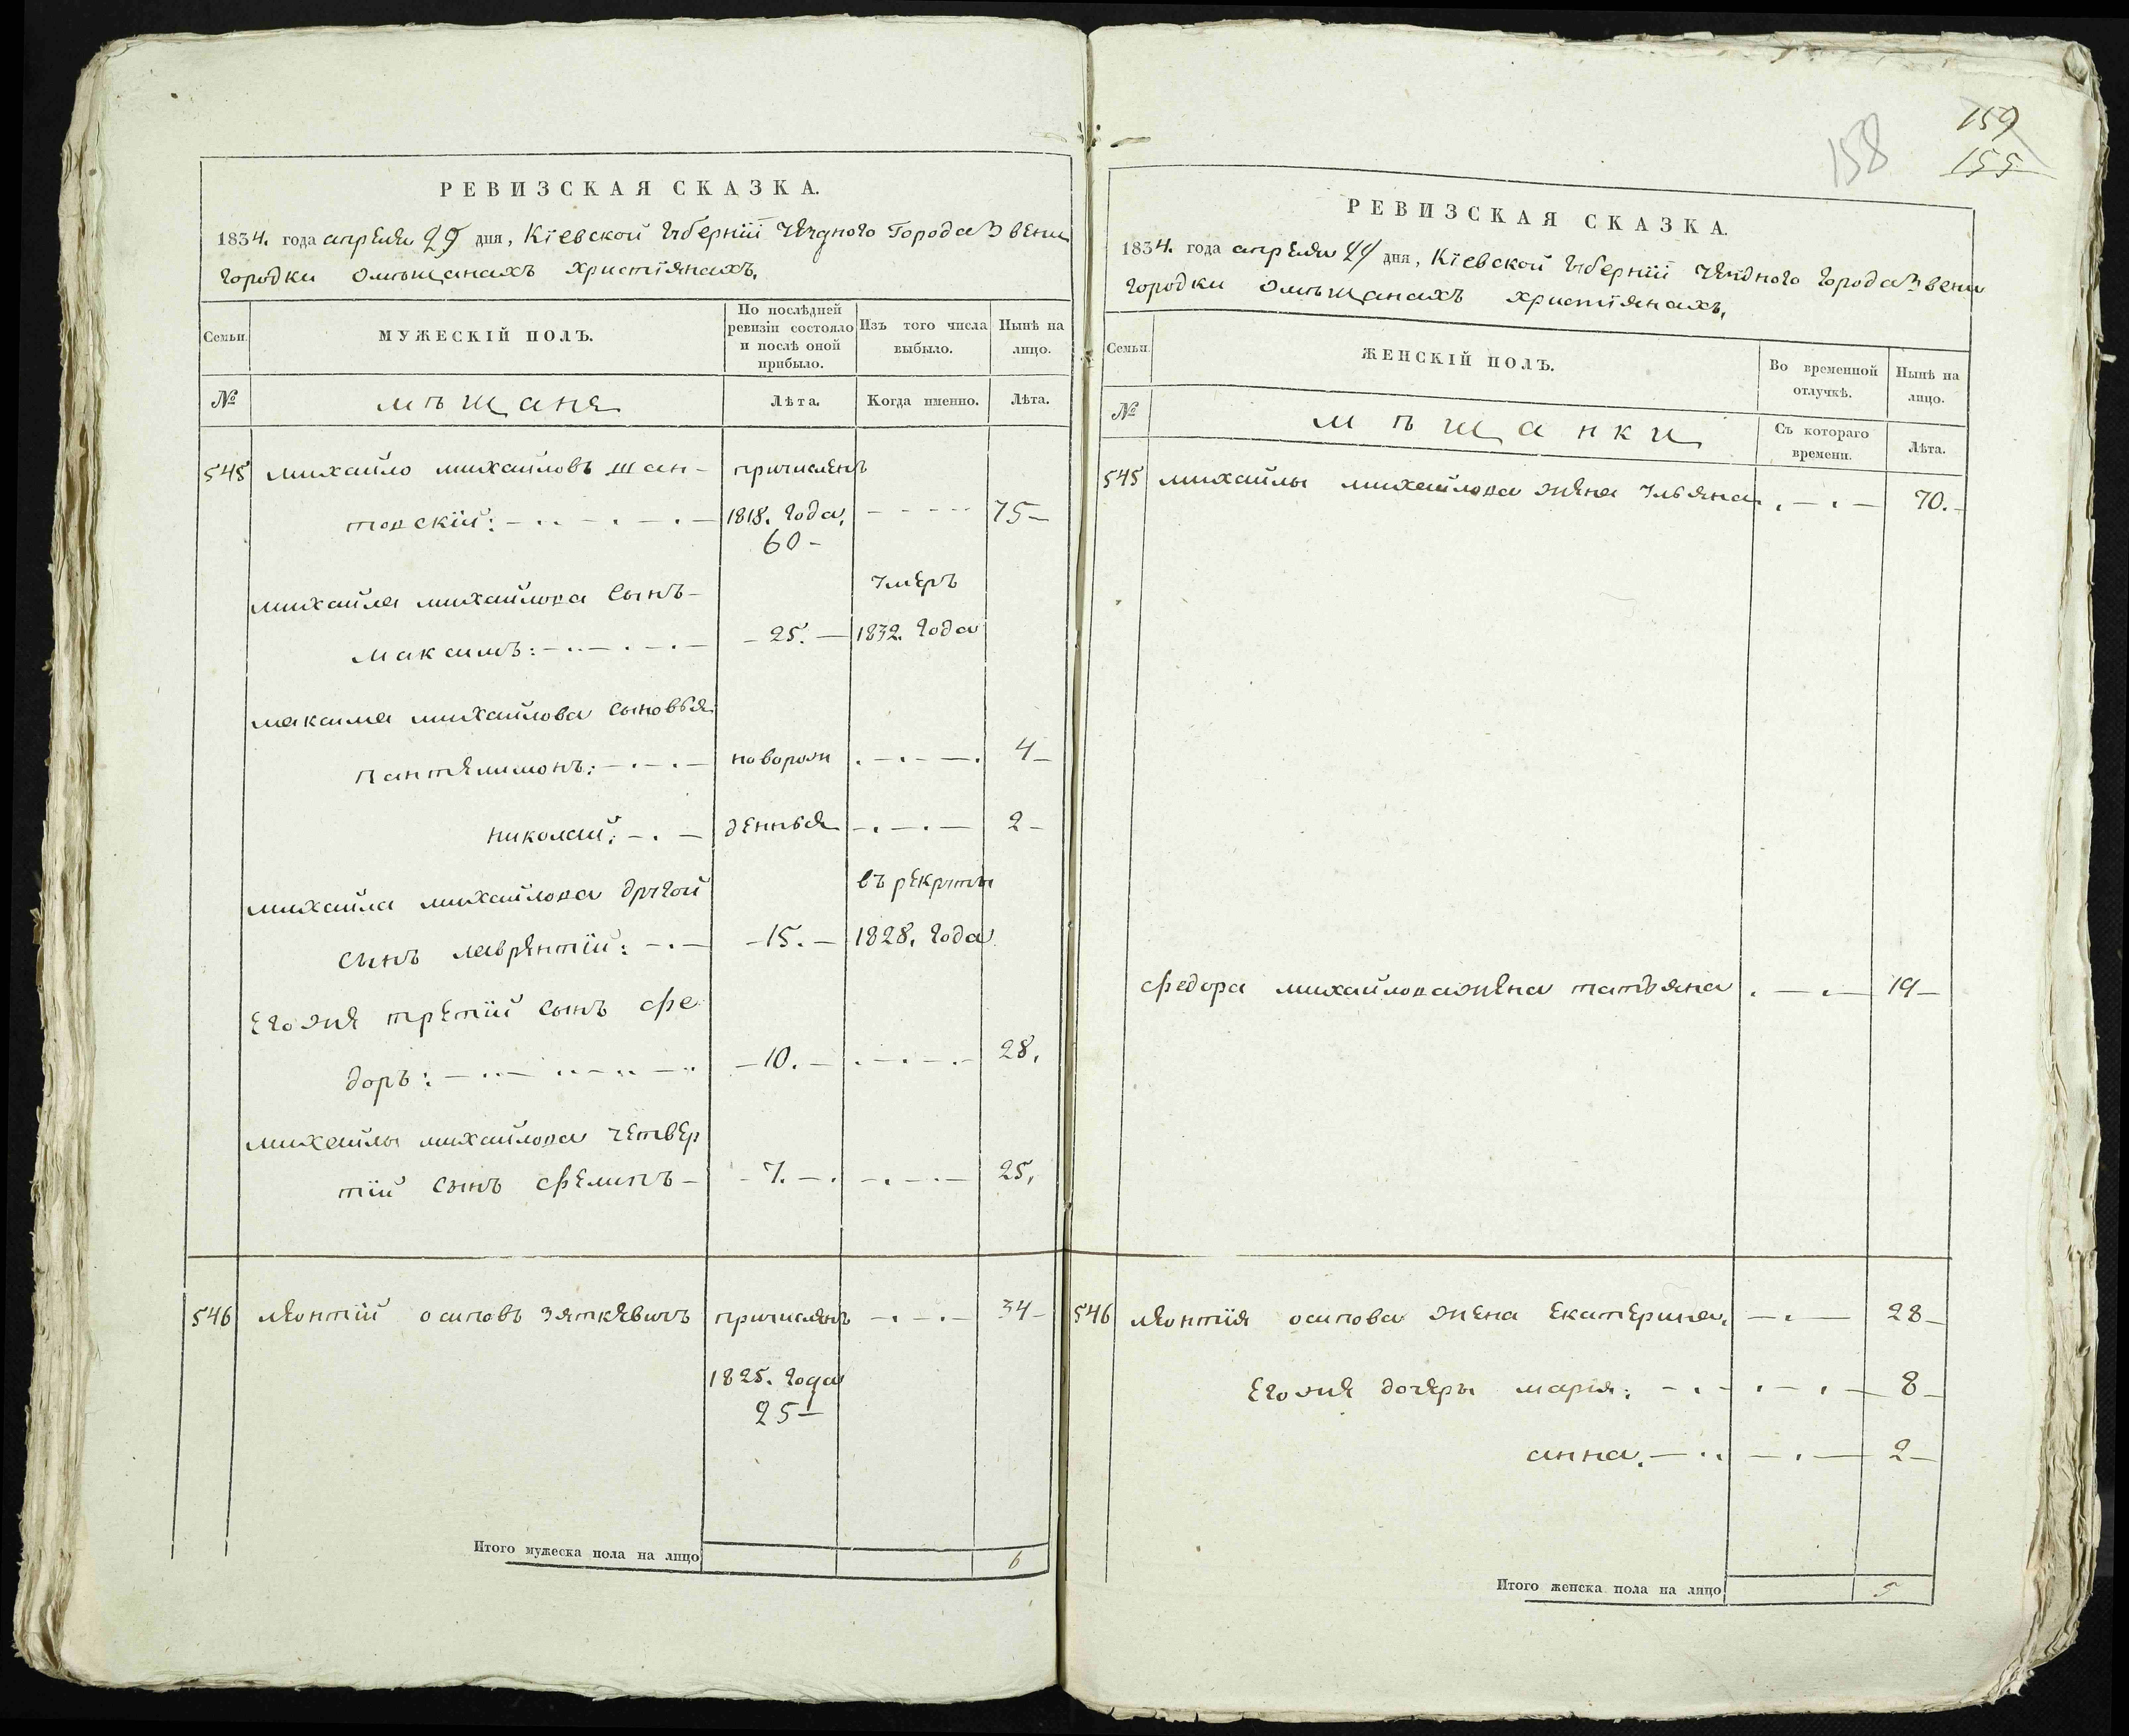 РЕВИЗСКАЯ СКАЗКА.
1834. года апреля 29 дня, Кіевской Губерніи Уезднаго Города Звени
городки омѣщанахъ христіянахъ.
Семьи. МУЖЕСКІЙ ПОЛЪ. По послѣдней ревизіи состояло и послѣ оной прибыло. Изъ того числа выбыло. Нынѣ на лицо.
№ мѣщане Лѣта. Когда именно. Лѣта.
545 михайло михайловъ шан- причисленъ
товскій: 1818. года, 75
60
михайла михайлова сынъ умеръ
максимъ: 25. 1832. года
максима михайлова сыновья
пантелимонъ:новорож 4
николай: денныя 2
михайла михайлова другой въ рекруты
сынъ лаврентій: 15. 1828. года
егоже третій сынъ фе
доръ: 10. 28.
михайлы михайлова четвер
тій сынъ фелипъ 7. 25.
546 леонтій осиповъ зяткевичъ причисленъ 34
1825. года
25
Итого мужеска пола на лицо 6
158
159
155
РЕВИЗСКАЯ СКАЗКА.
1834. года апреля 29 дня, Кіевской Губерніи Уезднаго города Звени
городки омѣщанахъ христіянахъ.
Семьи. ЖЕНСКІЙ ПОЛЪ. Во временной отлучкѣ. Нынѣ на лицо.
№ мѣщанки Съ котораго времени. Лѣта.
545 михайлы михайлова жена ульяна 70.
федора михайлова жена татьяна 19
546 леонтія осипова жена екатерина. 28
егоже дочеры марія: 8
анна. 2
Итого женска пола на лицо 5